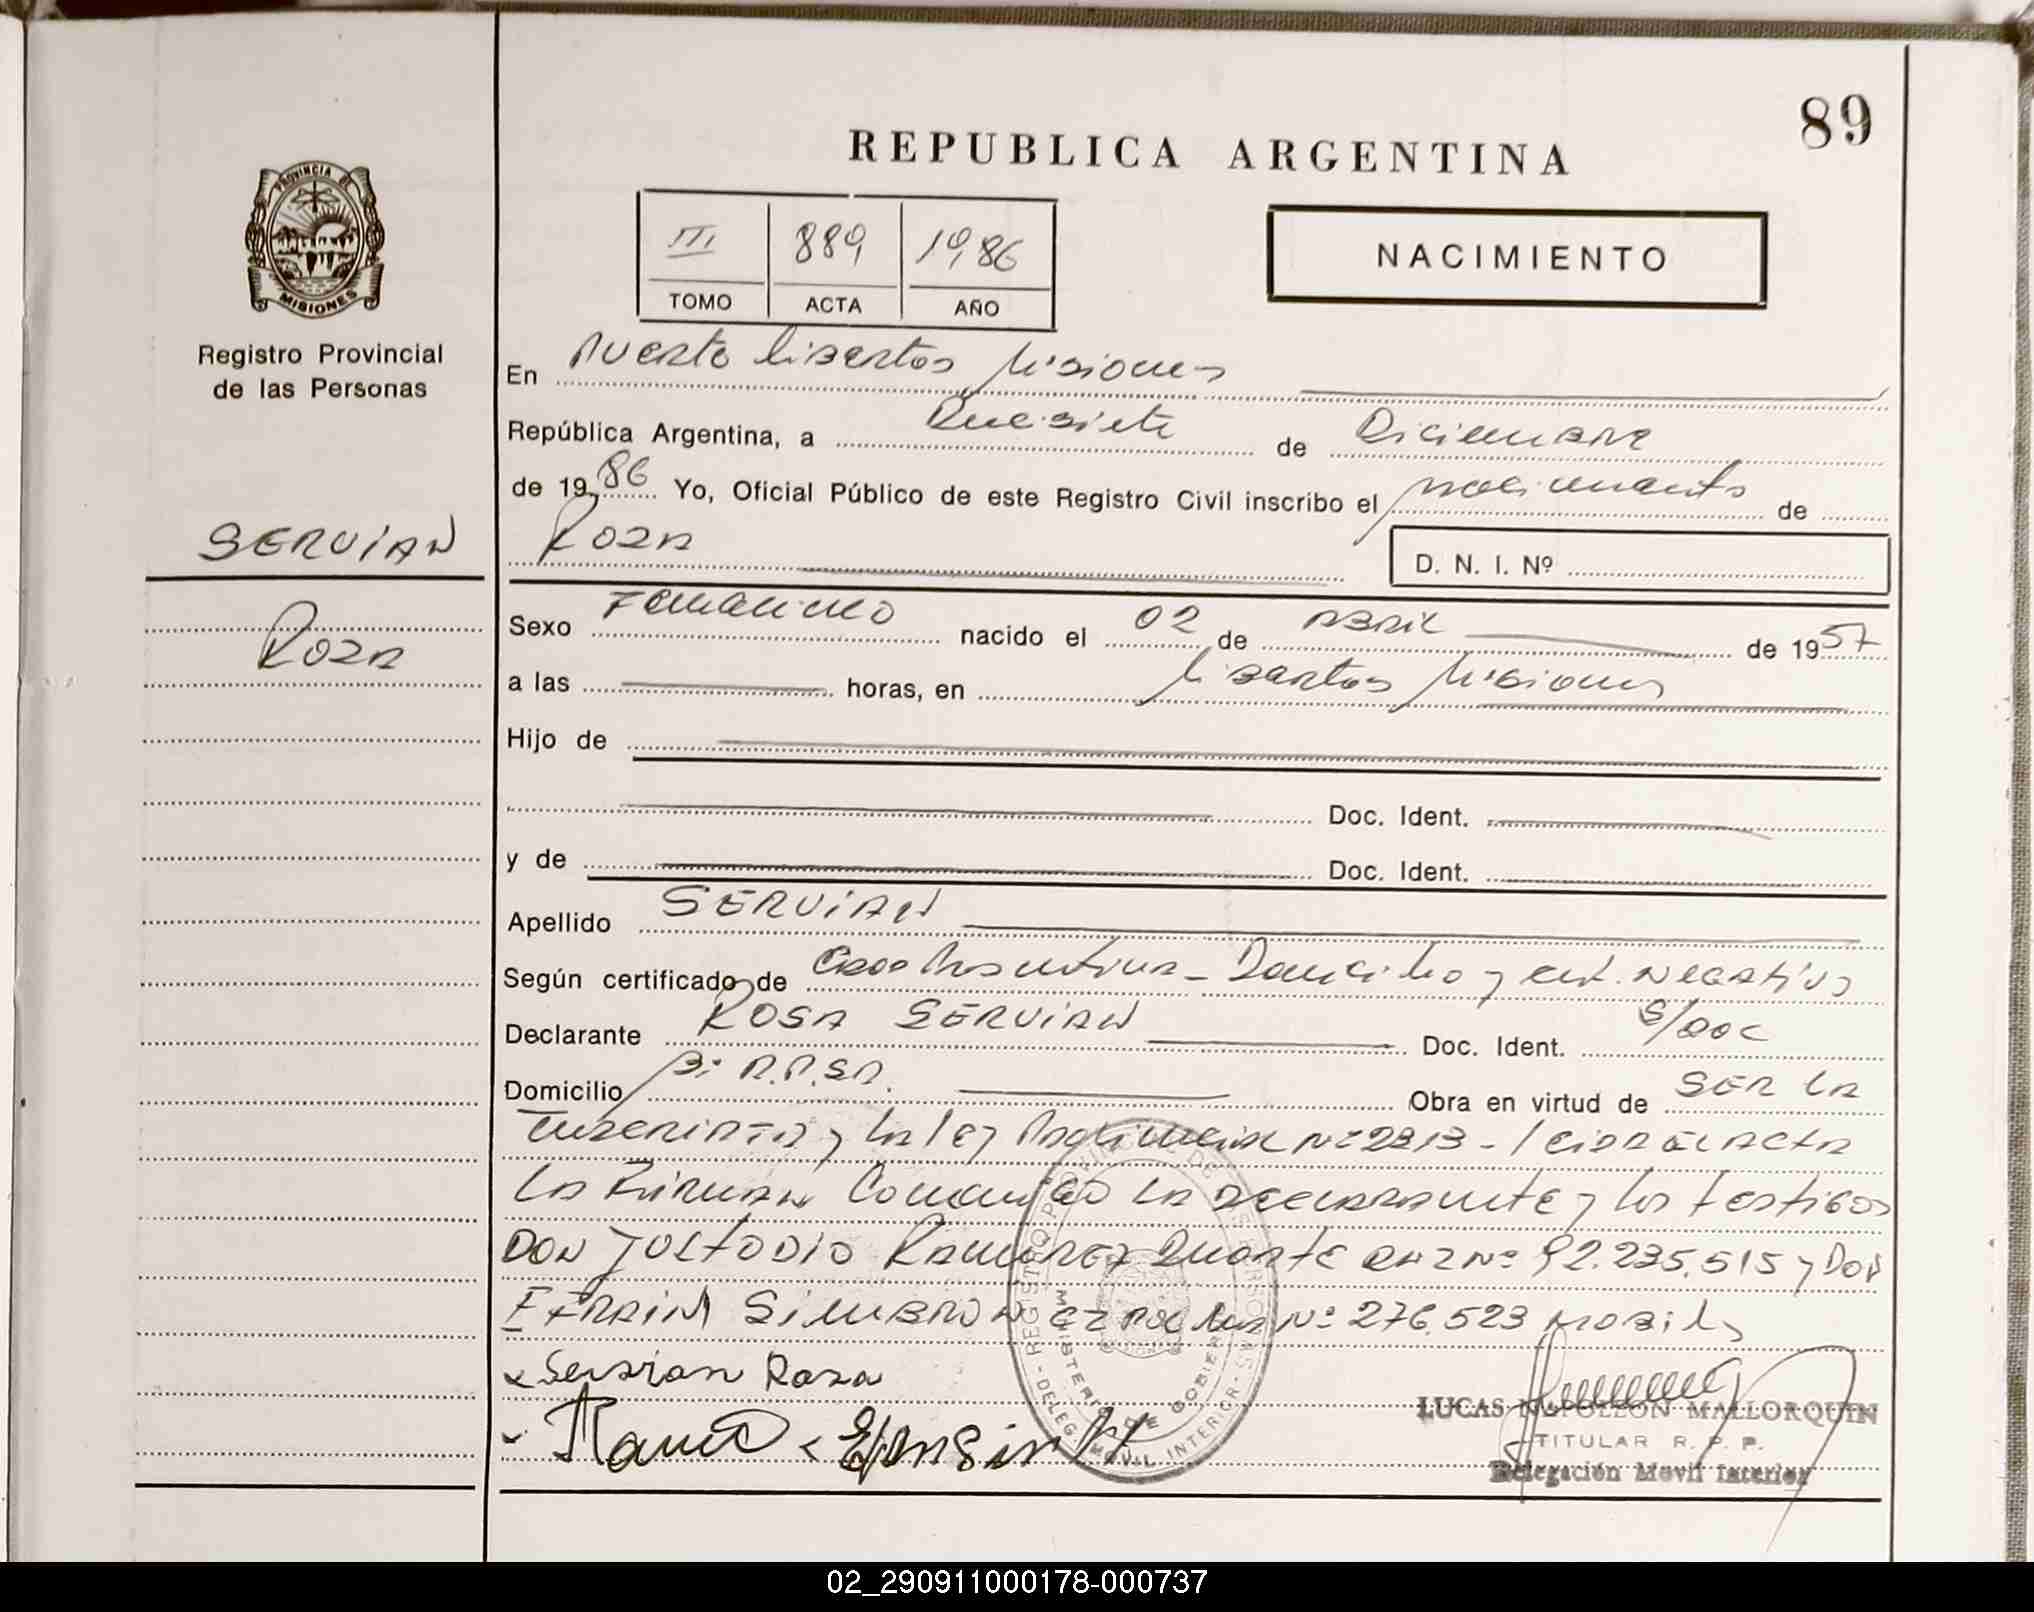 89
REPUBLICA ARGENTINA
III 889 1986
TOMO ACTA AÑO
NACIMIENTO
PROVINCIA DE
MISIONES
Registro Provincial
de las Personas
SERVIAN
Roza
En Puerto Libertad, Misiones
República Argentina, a Diecisiete de Diciembre
de 1986 Yo, Oficial Público de este Registro Civil inscribo el nacimiento de
Roza D. N. I. Nº
Sexo Femenino nacido el 02 de Abril de 1957
a las horas, en Libertad Misiones
Hijo de
Doc. Ident.
y de Doc. Ident.
Apellido SERVIAN
Según certificado de Domicilio y cert. NEGATIVO
Declarante ROSA SERVIAN Doc. Ident. S/DOC
Domicilio Obra en virtud de SER LA
y la ley Provincial Nº 2313 - leida EL ACTA
LA Firman Conmigo LA declarante y los testigos
DON JUSTODIO RAMIREZ Duarte DNI Nº 92.235.515 y DON
EFRAIN Nº 276.523
x Servian Roza
LUCAS NAPOLEON MALLORQUIN
TITULAR R. P. P.
Delegación Movil Interior
REGISTRO PROVINCIAL DE LAS PERSONAS
MINISTERIO DE GOBIERNO
DELEG. MOVIL INTERIOR
02_290911000178-000737